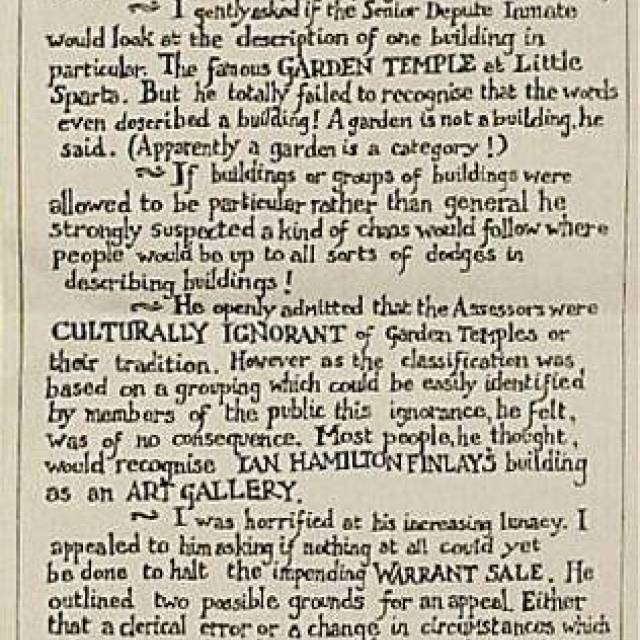 ~ I gently asked if the Senior Depute Inmate
would look at the description of one building in
particular. The famous GARDEN TEMPLE at Little
Sparta. But he totally failed to recognise that the words
even described a building! A garden is not a building, he
said. (Apparently a garden is a category!)
~ If buildings or groups of buildings were
allowed to be particular rather than general he
strongly suspected a kind of chaos would follow where
people would be up to all sorts of dodges in
describing buildings!
~ He openly admitted that the Assessors were
CULTURALLY IGNORANT of Garden Temples or
their tradition. However as the classification was
based on a grouping which could be easily identified
by members of the public this ignorance, he felt,
was of no consequence. Most people, he thought,
would recognise IAN HAMILTON FINLAY'S building
as an ART GALLERY.
~ I was horrified at his increasing lunacy. I
appealed to him asking if nothing at all could yet
be done to halt the impending WARRANT SALE. He
outlined two possible grounds for an appeal. Either
that a clerical error or a change in circumstances which